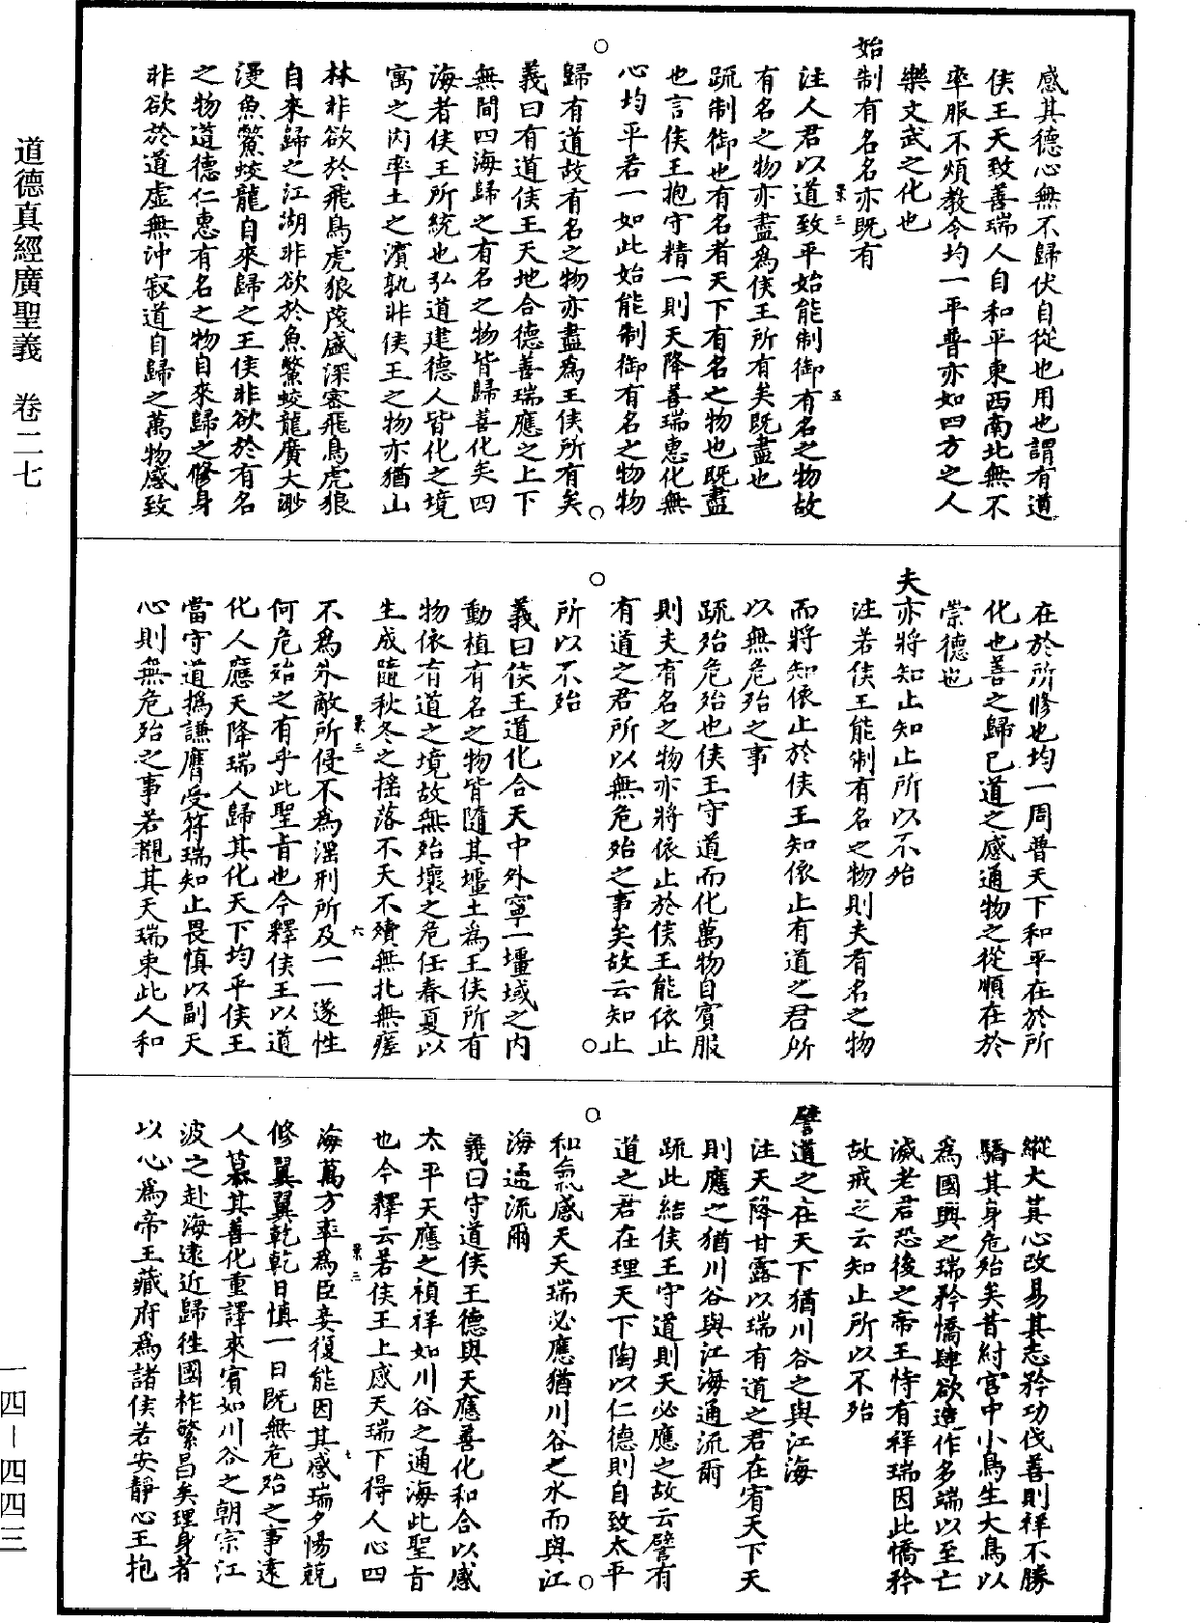 道德真經廣聖義　卷二七
感其德心無不歸伏自從也用也謂有道
侯王天致善瑞人自和平東西南北無不
率服不煩教令均一平普亦如四方之人
樂文武之化也
始制有名名亦既有
注人君以道致平始能制御有名之物故
有名之物亦盡為侯王所有矣既盡也
疏制御也有名者天下有名之物也既盡
也言侯王抱守精一則天降善瑞惠化無
心均平若一如此始能制御有名之物物
歸有道故有名之物亦盡為王侯所有矣
義曰有道侯王天地合德善瑞應之上下
無間四海歸之有名之物皆歸善化矣四
海者侯王所統也弘道建德人皆化之境
寓之內率土之濱孰非侯王之物亦猶山
林非欲於飛鳥虎狼茂盛深密飛鳥虎狼
自來歸之江湖非欲於魚鱉蛟龍廣大渺
漫魚鱉蛟龍自來歸之王侯非欲於有名
之物道德仁惠有名之物自來歸之修身
非欲於道虛無沖寂道自歸之萬物感致
在於所修也均一周普天下和平在於所
化也善之歸已道之感通物之從順在於
崇德也
夫亦將知止知止所以不殆
注若侯王能制有名之物則夫有名之物
而將知依止於侯王知依止有道之君所
以無危殆之事
疏殆危殆也侯王守道而化萬物自賓服
則夫有名之物亦將依止於侯王能依止
有道之君所以無危殆之事矣故云知止
所以不殆
義曰侯王道化合天中外寧一壃域之內
動植有名之物皆隨其壃土為王侯所有
物依有道之境故無殆壞之危任春夏以
生成隨秋冬之搖落不夭不殰無札無瘥
不為外敵所侵不為淫刑所及一一遂性
何危殆之有乎此聖旨也今釋侯王以道
化人應天降瑞人歸其化天下均平侯王
當守道撝謙膺受符瑞知止畏慎以副天
心則無危殆之事若覩其天瑞東此人和
縱大其心改易其志矜功伐善則祥不勝
驕其身危殆矣昔紂宮中小鳥生大鳥以
為國興之瑞矜憍肆欲造作多端以至亡
滅老君恐後之帝王恃有祥瑞因此憍矜
故戒之云知止所以不殆
譬道之在天下猶川谷之與江海
注天降甘露以瑞有道之君在宥天下天
則應之猶川谷與江海通流爾
疏此結侯王守道則天必應之故云譬有
道之君在理天下陶以仁德則自致太平
和氣感天天瑞必應猶川谷之水而與江
海通流爾
義曰守道侯王德與天應善化和合以感
太平天應之禎祥如川谷之通海此聖旨
也今釋云若侯王上感天瑞下得人心四
海萬方率為臣妾復能因其感瑞夕惕兢
修翼翼乾乾日慎一日既無危殆之事遠
人慕其善化重譯來賓如川谷之朝宗江
波之赴海遠近歸往國祚繁昌矣理身者
以心為帝王藏府為諸侯若安靜心王抱
景三
五
景三
六
景三
七
一四—四四三